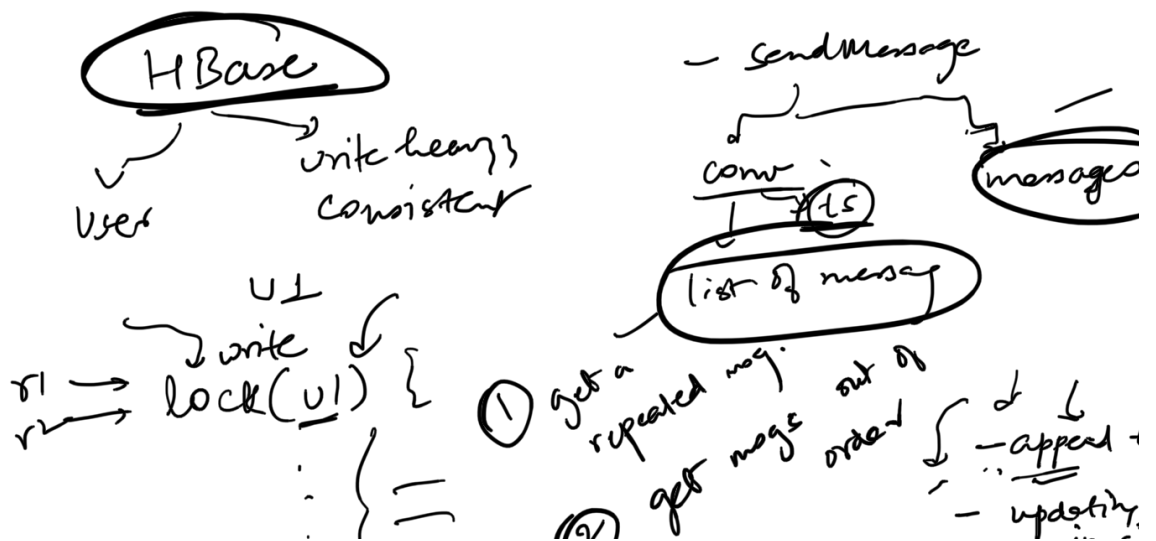 HBase
User
write heavy
consistent
U1
write
r1
r2
lock(u1) {
- sendMessage
conv
ts
messages
list of messag
1 get a
repeated msg.
2 get msgs out of
order
- append
- updating